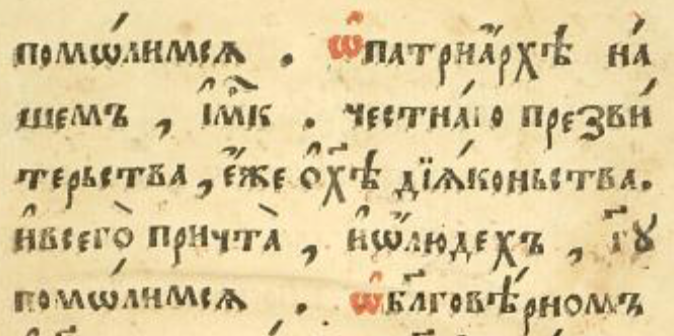 помѡ́лимсѧ . ѡ҆патриа́рхѣ на́
шемъ , і҆м҃к . честна́го презви́
терьства , є҆́же ѻ҆ х҃ѣ дїѧ́коньства.
и҆всего̀ причта̀ , и҆ѡ҆лю́дехъ , г҃ꙋ
помѡ́лимсѧ . ѡ҆бл҃говѣ́рномъ